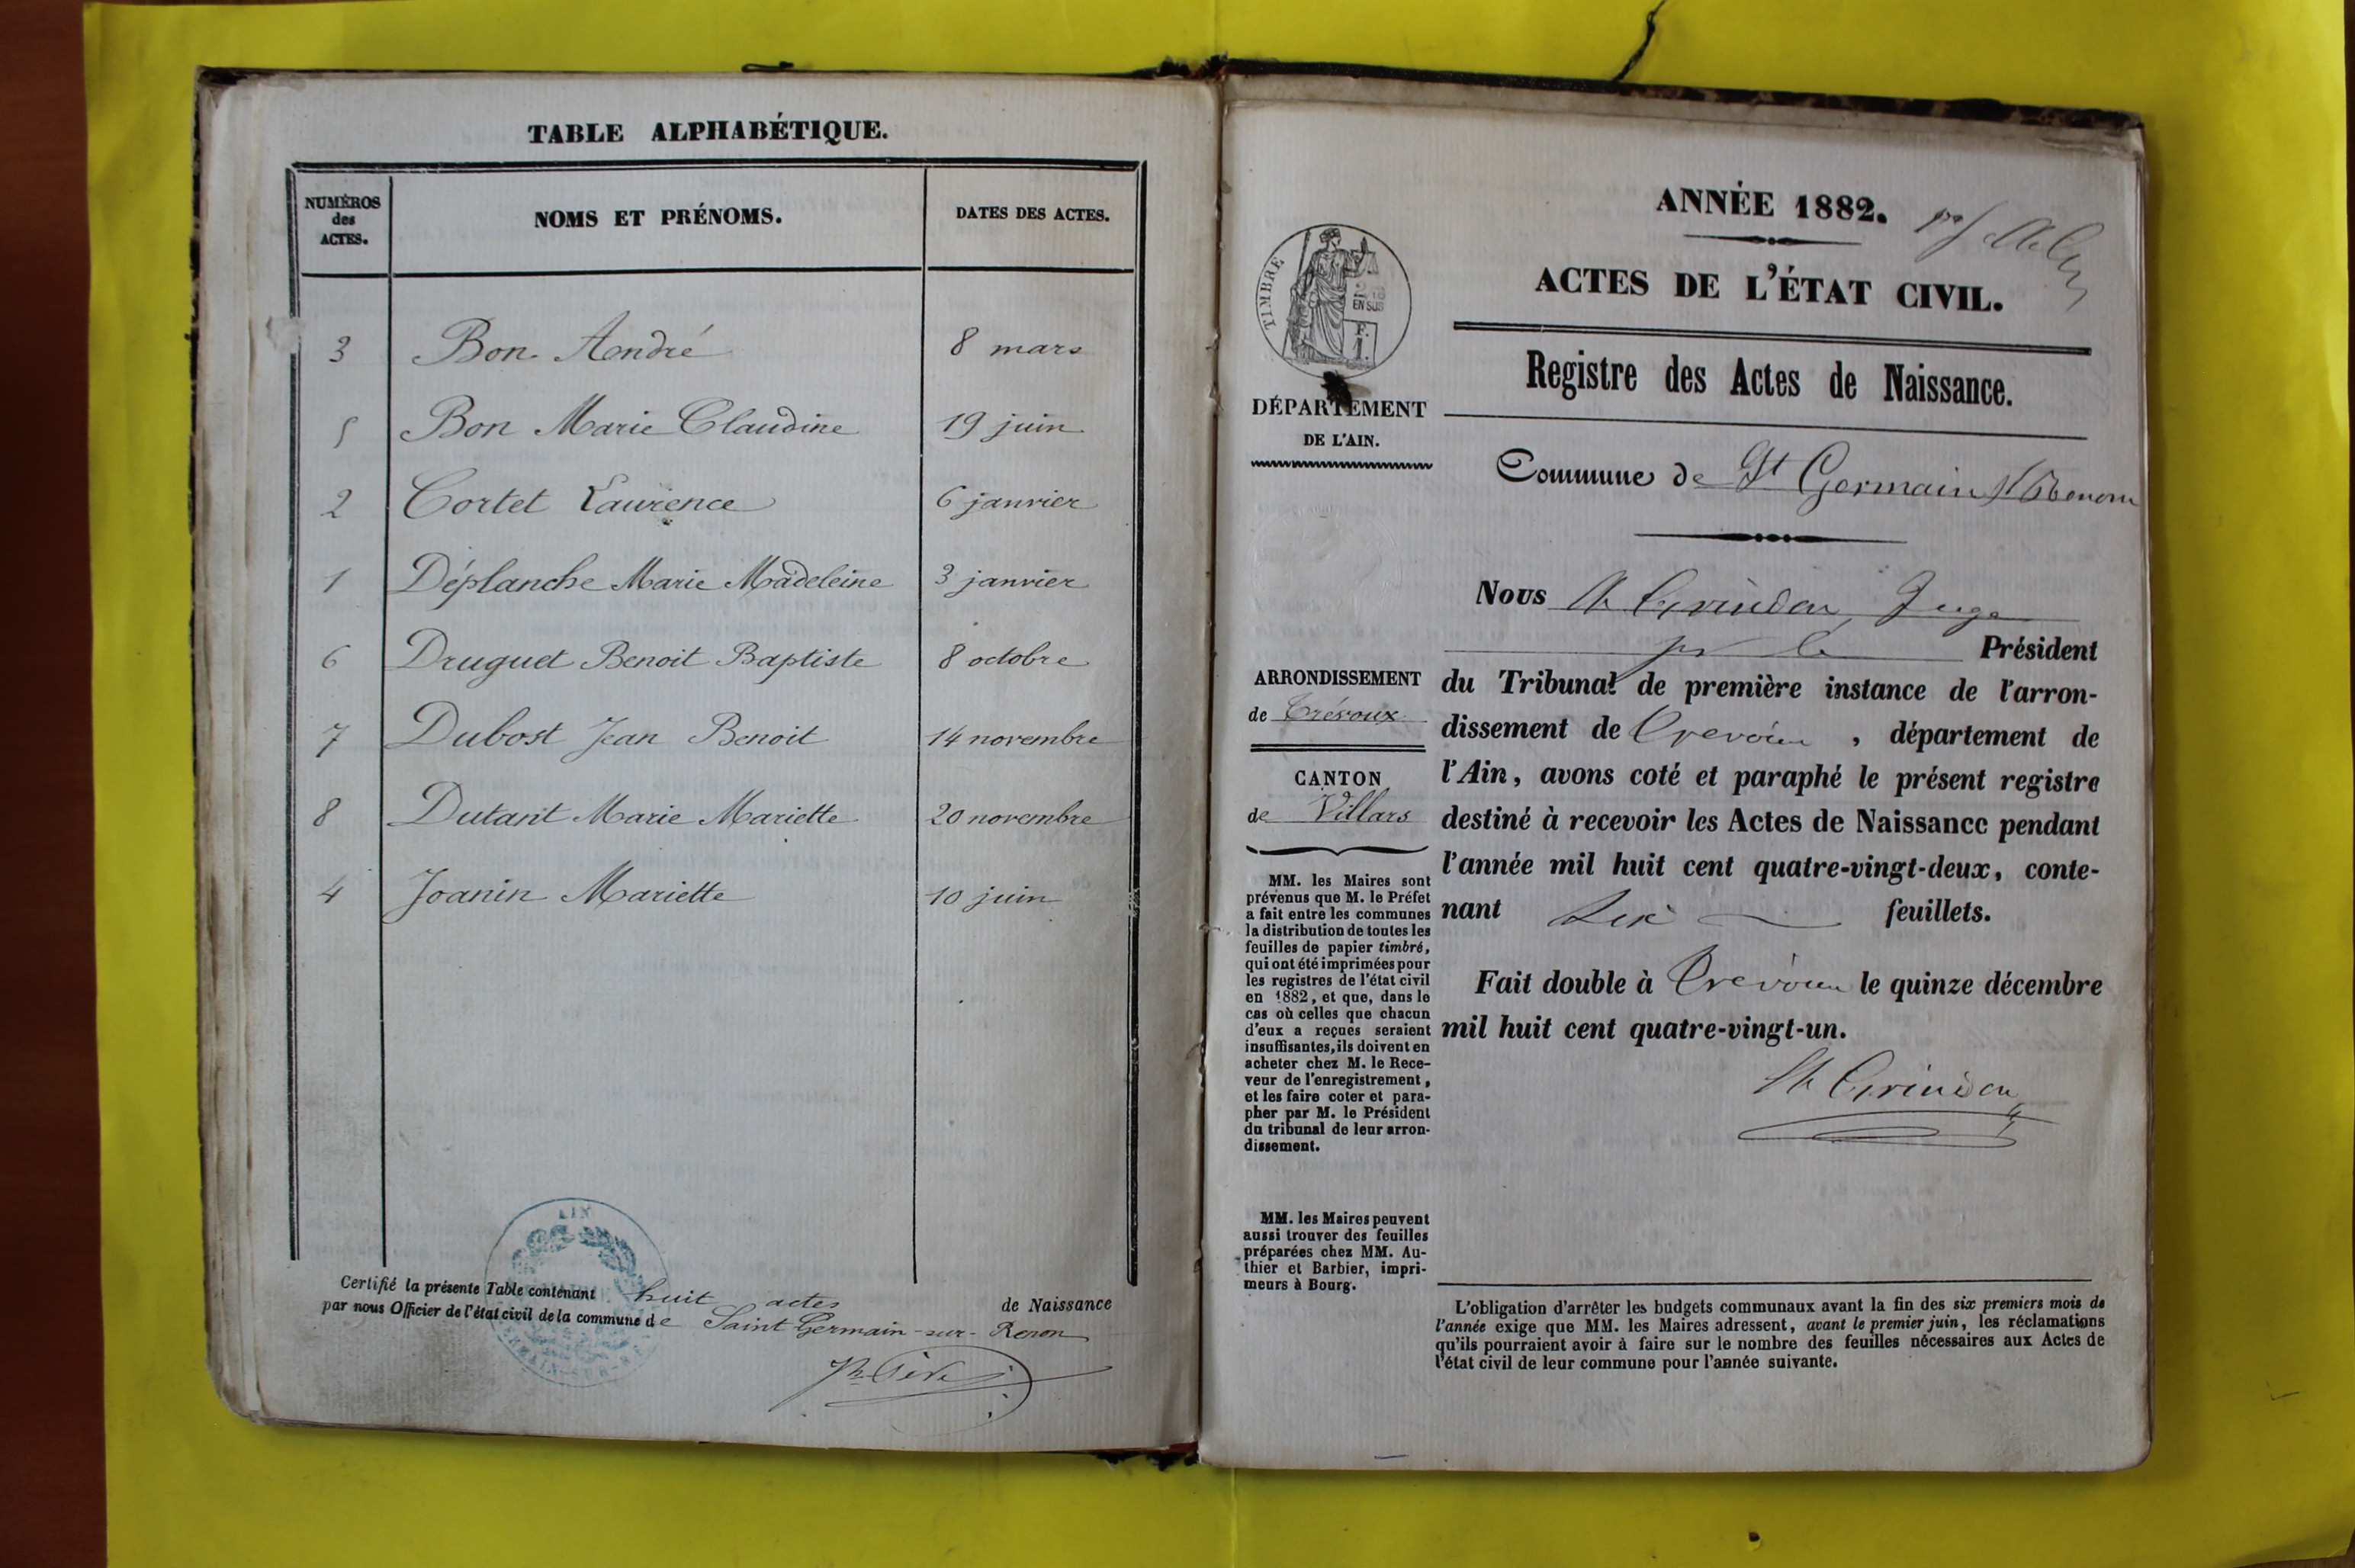 TABLE ALPHABÉTIQUE.
NUMÉROS des ACTES.
NOMS ET PRÉNOMS.
DATES DES ACTES.
3 Bon André 8 mars
5 Bon Marie Claudine 19 juin
2 Cortet Laurence 6 janvier
1 Déplanche Marie Madeleine 3 janvier
6 Druguet Benoit Baptiste 8 octobre
7 Dubost Jean Benoit 14 novembre
8 Dutant Marie Mariette 20 novembre
4 Joanin Mariette 10 juin
AIN
Certifié la présente Table contenant huit actes de Naissance
par nous Officier de l'état civil de la commune de Saint Germain-sur-Renon
ANNÉE 1882.
ACTES DE L'ÉTAT CIVIL.
Registre des Actes de Naissance.
Commune de St Germain s/ Renom
TIMBRE
EN SUS
DÉPARTEMENT
DE L'AIN.
ARRONDISSEMENT
de Trévoux
CANTON
de Villars
MM. les Maires sont
prévenus que M. le Préfet
a fait entre les communes
la distribution de toutes les
feuilles de papier timbré,
qui ont été imprimées pour
les registres de l'état civil
en 1882, et que, dans le
cas où celles que chacun
d'eux a reçues seraient
insuffisantes, ils doivent en
acheter chez M. le Rece-
veur de l'enregistrement,
et les faire coter et para-
pher par M. le Président
du tribunal de leur arron-
dissement.
MM. les Maires peuvent
aussi trouver des feuilles
préparées chez MM. Au-
thier et Barbier, impri-
meurs à Bourg.
Nous Grindon, Juge
pr le Président
du Tribunal de première instance de l'arron-
dissement de Trevoux, département de
l'Ain, avons coté et paraphé le présent registre
destiné à recevoir les Actes de Naissance pendant
l'année mil huit cent quatre-vingt-deux, conte-
nant six feuillets.
Fait double à Trevoux le quinze décembre
mil huit cent quatre-vingt-un.
Grindon
L'obligation d'arrêter les budgets communaux avant la fin des six premiers mois de
l'année exige que MM. les Maires adressent, avant le premier juin, les réclamations
qu'ils pourraient avoir à faire sur le nombre des feuilles nécessaires aux Actes de
l'état civil de leur commune pour l'année suivante.